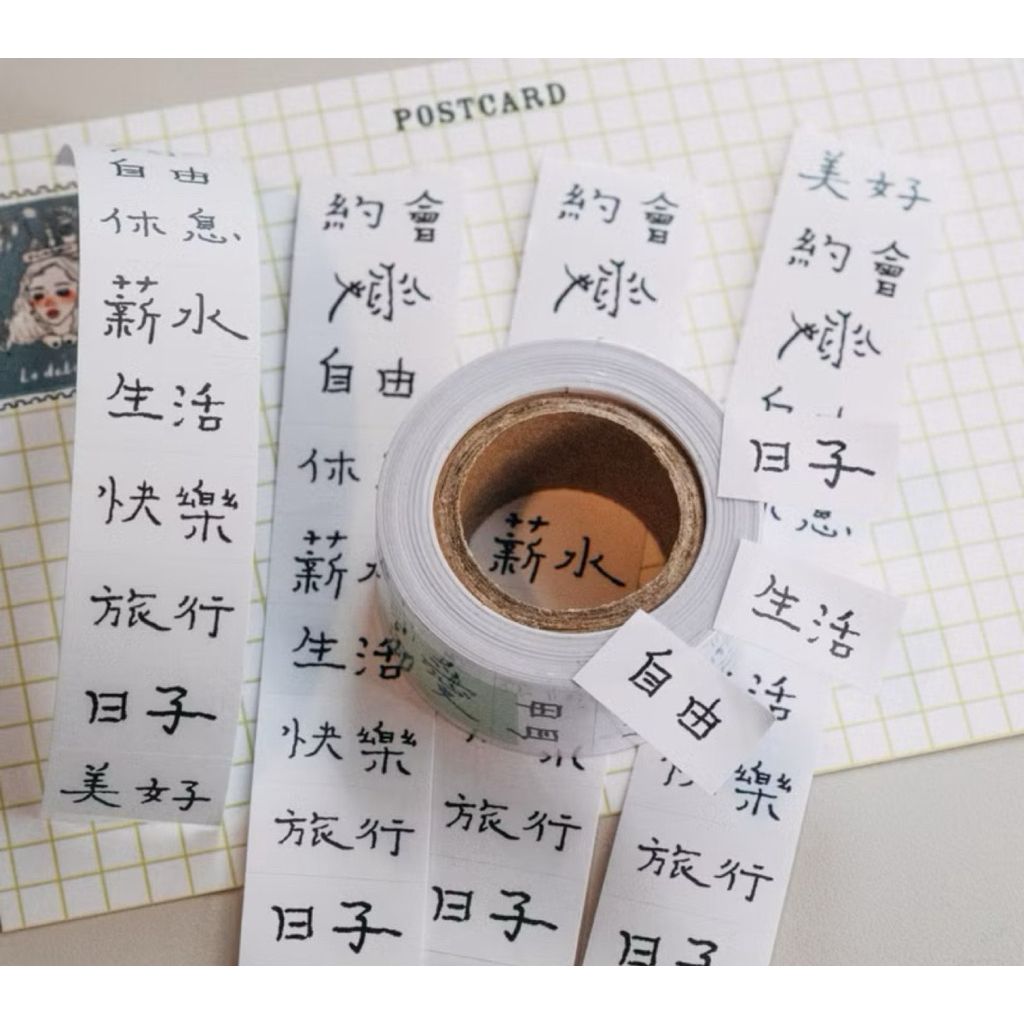 POSTCARD
自由
休息
薪水
生活
快樂
旅行
日子
美好
約會
自由
休
薪
生活
快樂
旅行
日子
約會
薪水
旅行
日子
美好
約會
日子
生活
自由
活
樂
旅行
日子